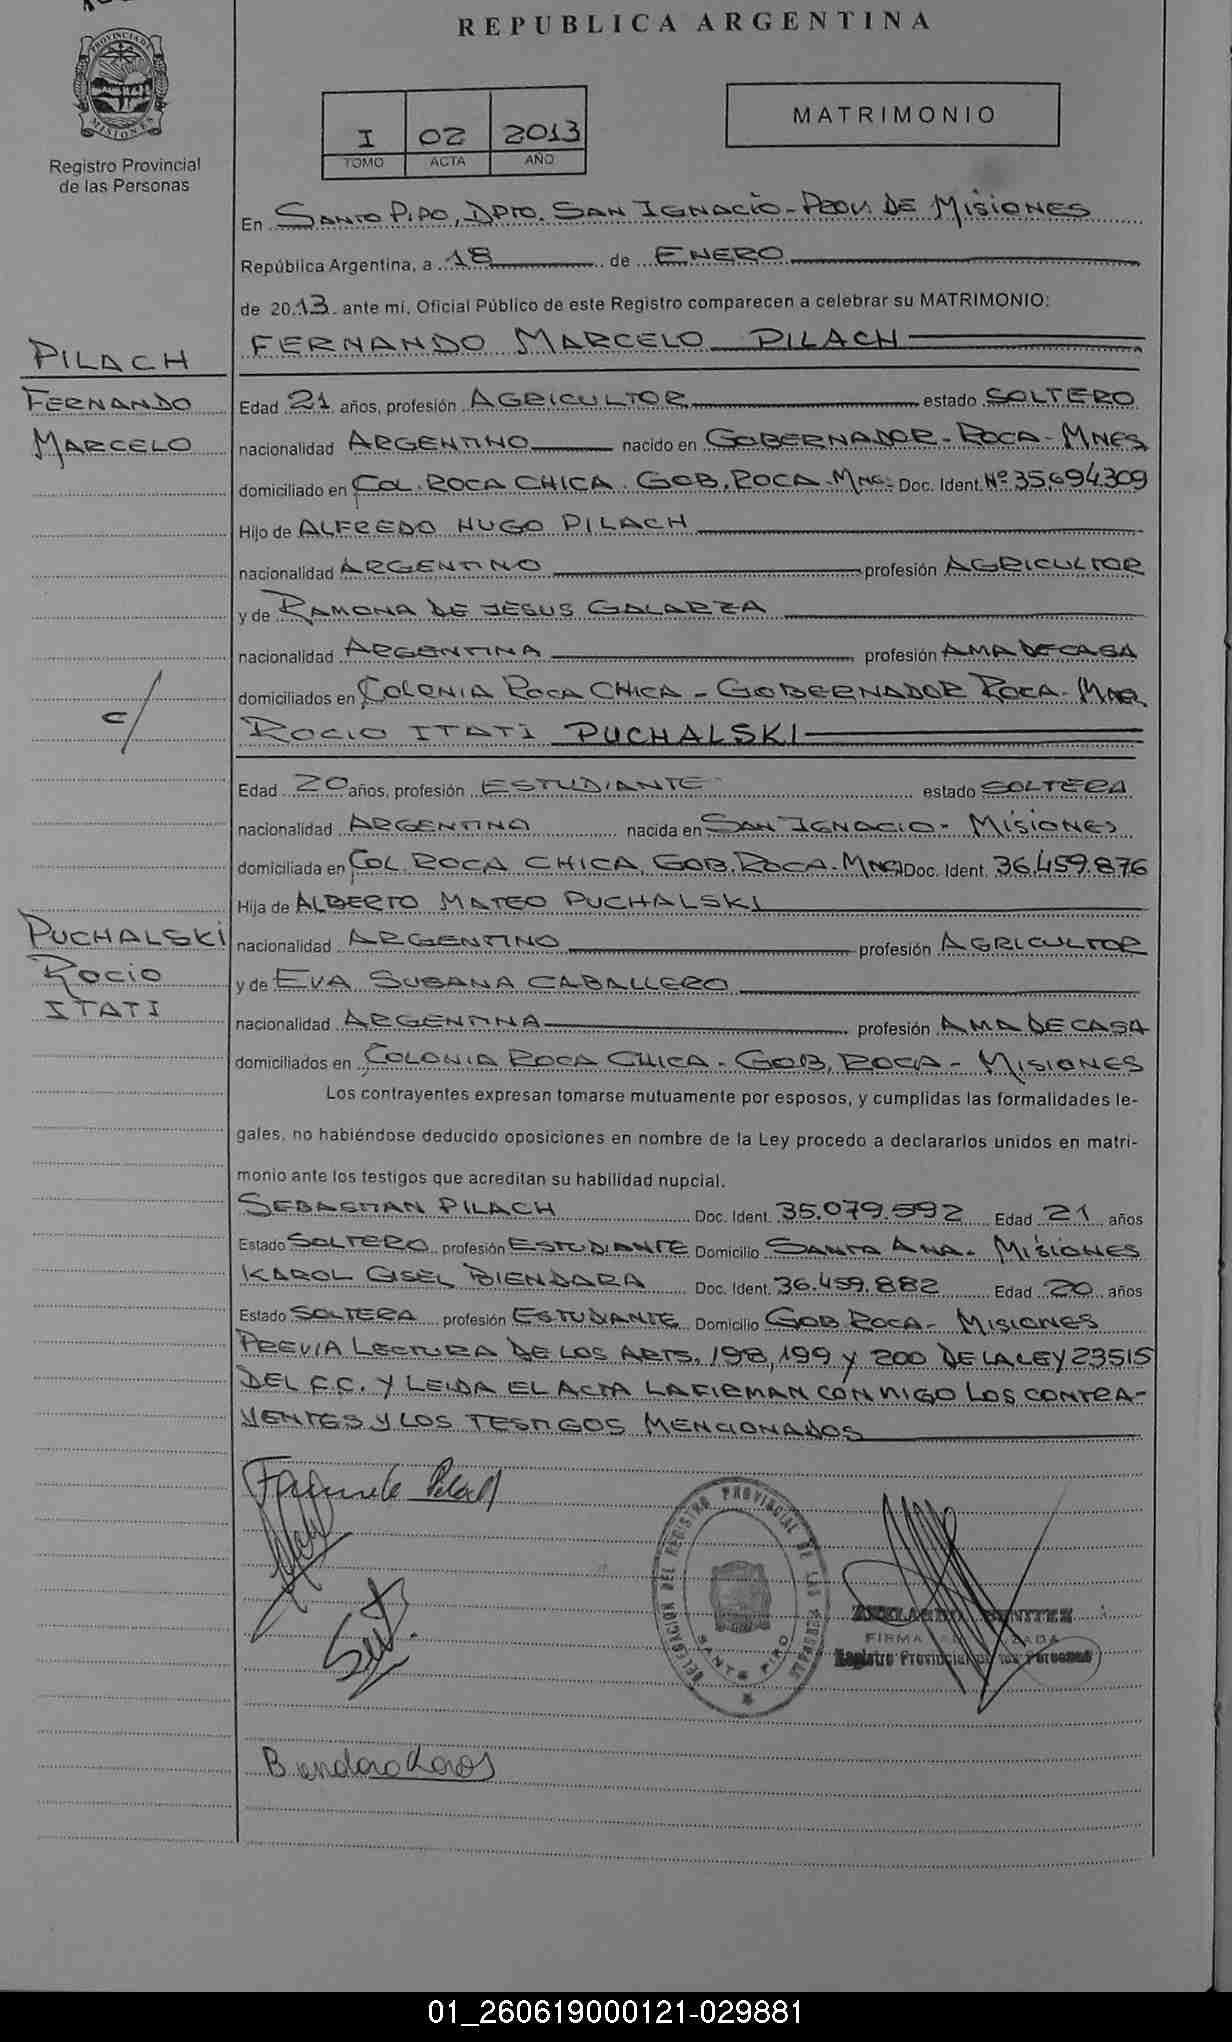 REPUBLICA ARGENTINA
PROVINCIA DE MISIONES
Registro Provincial
de las Personas
I 02 2013
TOMO ACTA AÑO
MATRIMONIO
En SANTO PIPO, DPTO. SAN IGNACIO - PCON DE MISIONES
República Argentina, a 18 de ENERO
de 2013 ante mi, Oficial Público de este Registro comparecen a celebrar su MATRIMONIO:
FERNANDO MARCELO PILACH
PILACH
FERNANDO
MARCELO
Edad 21 años, profesión AGRICULTOR estado SOLTERO
nacionalidad ARGENTINO nacido en GOBERNADOR - ROCA - MNES
domiciliado en COL. ROCA CHICA. GOB. ROCA - MNES Doc. Ident. Nº 35.694.309
Hijo de ALFREDO HUGO PILACH
nacionalidad ARGENTINO profesión AGRICULTOR
y de RAMONA DE JESUS GALARZA
nacionalidad ARGENTINA profesión AMA DE CASA
domiciliados en COLONIA ROCA CHICA - GOBERNADOR ROCA - MNES
c/
ROCIO ITATI PUCHALSKI
Edad 20 años, profesión ESTUDIANTE estado SOLTERA
nacionalidad ARGENTINA nacida en SAN IGNACIO - MISIONES
domiciliada en COL. ROCA CHICA. GOB. ROCA - MNES Doc. Ident. 36.459.876
Hija de ALBERTO MATEO PUCHALSKI
PUCHALSKI
ROCIO
ITATI
nacionalidad ARGENTINO profesión AGRICULTOR
y de EVA SUSANA CABALLERO
nacionalidad ARGENTINA profesión AMA DE CASA
domiciliados en COLONIA ROCA CHICA - GOB. ROCA - MISIONES
Los contrayentes expresan tomarse mutuamente por esposos, y cumplidas las formalidades le-
gales, no habiéndose deducido oposiciones en nombre de la Ley procedo a declararlos unidos en matri-
monio ante los testigos que acreditan su habilidad nupcial.
SEBASTIAN PILACH Doc. Ident. 35.079.592 Edad 21 años
Estado SOLTERO profesión ESTUDIANTE Domicilio SANTA ANA - MISIONES
KAROL GISEL BIENDARA Doc. Ident. 36.459.882 Edad 20 años
Estado SOLTERA profesión ESTUDIANTE Domicilio GOB. ROCA - MISIONES
PREVIA LECTURA DE LOS ARTS. 198, 199 y 200 DE LA LEY 23515
DEL C.C. Y LEIDA EL ACTA LA FIRMAN CONMIGO LOS CONTRA-
YENTES Y LOS TESTIGOS MENCIONADOS
DELEGACION DEL REGISTRO PROVINCIAL DE LAS PERSONAS
SANTO PIPO
BENITEZ
FIRMA AUTORIZADA
Registro Provincial de las Personas
01_260619000121-029881